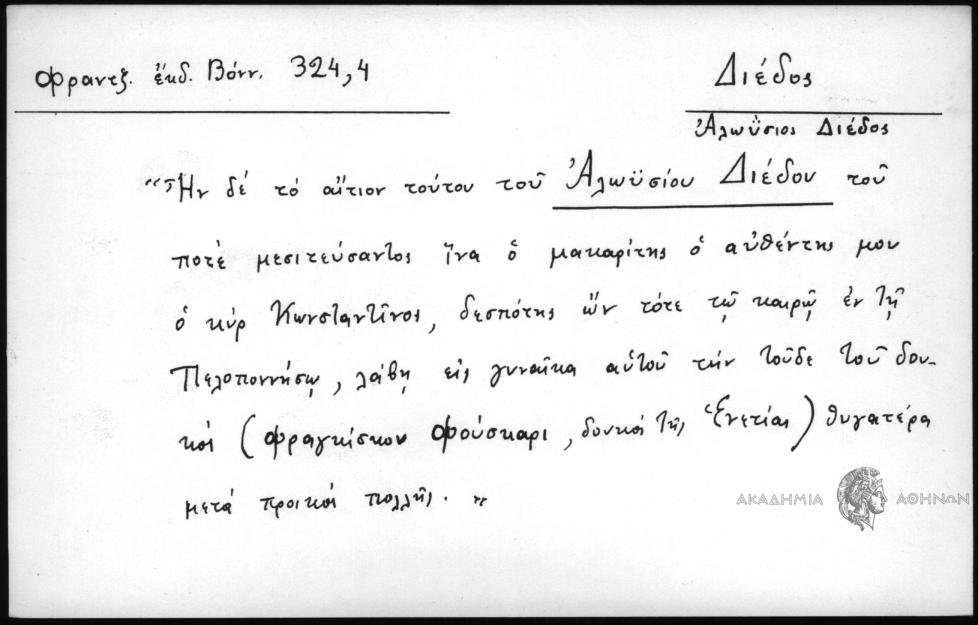 Φραντζ. ἔκδ. Βόνν. 324,4
Διέδος
Ἀλωΰσιος Διέδος
"Ἦν δέ τό αἴτιον τούτου τοῦ Ἀλωϋσίου Διέδου τοῦ
ποτὲ μεσιτεύσαντος ἵνα ὁ μακαρίτης ὁ αὐθέντης μου
ὁ κύρ Κωνσταντῖνος, δεσπότης ὤν τότε τῷ καιρῷ ἐν τῇ
Πελοποννήσῳ, λάβῃ εἰς γυναῖκα αὑτοῦ τήν τοῦδε τοῦ δου-
κός (Φραγκίσκου Φούσκαρι, δουκός τῆς Ἑνετίας) θυγατέρα
μετά προικός πολλῆς."
ΑΚΑΔΗΜΙΑ ΑΘΗΝΩΝ